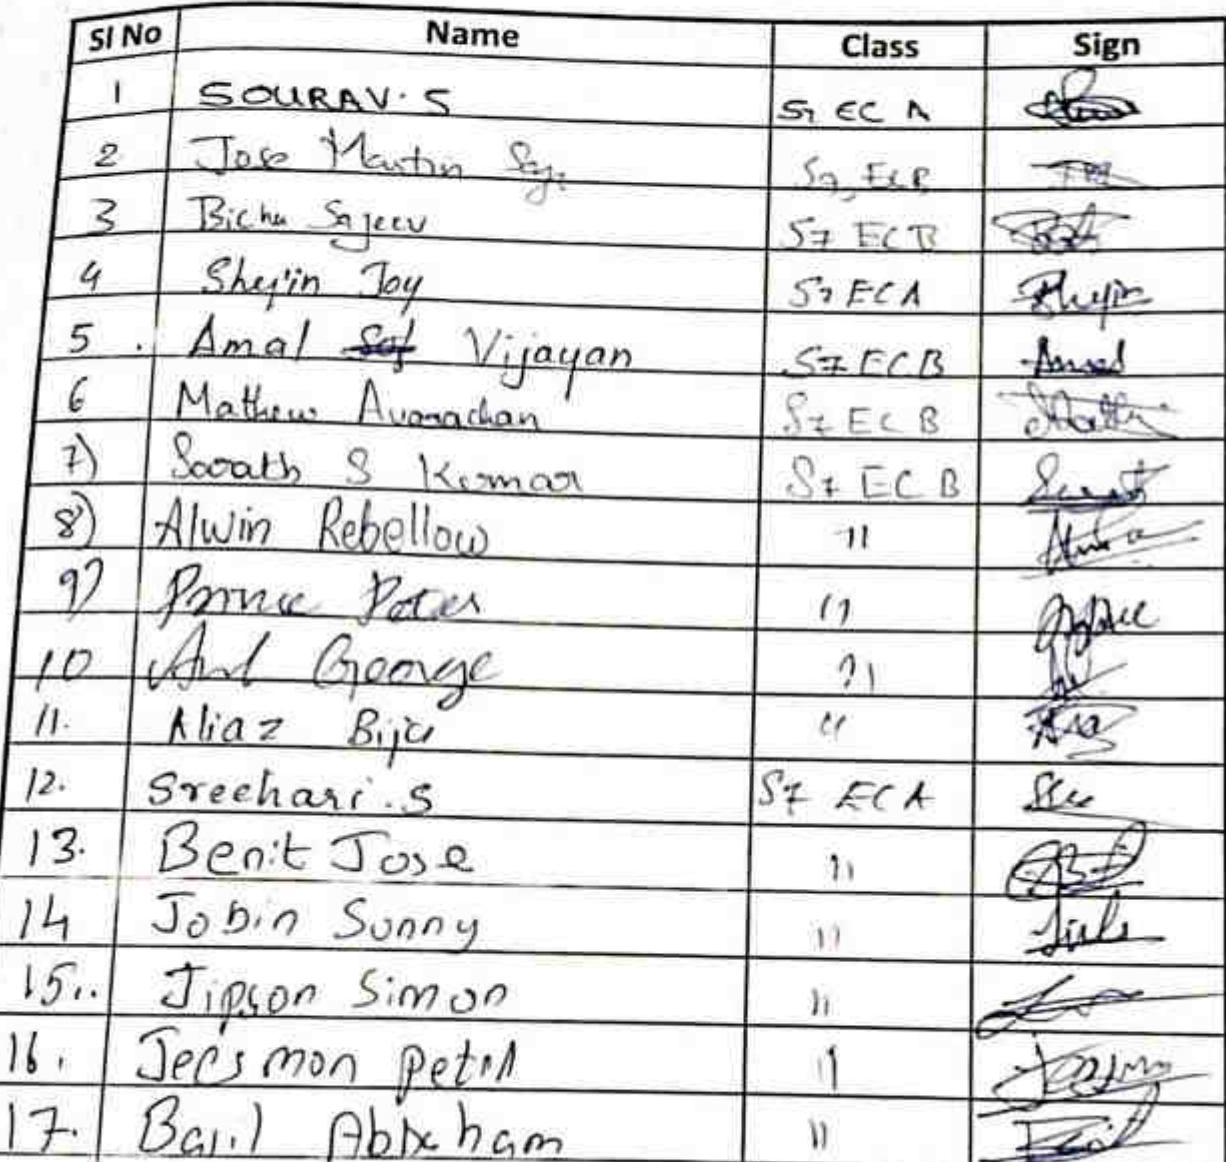 Sl No Name Class Sign
1 SOURAV.S S7 EC A
2 Jose Martin S7, ECB
3 Bichu Sajeev S7 ECB
4 Shejin Joy S7 ECA Shejin
5 . Amal Vijayan S7 ECB Amal
6 Mathew Avarachan S7 ECB
7) Sarath S Kumar S7 ECB
8) Alwin Rebellow "
9) Prince Peter "
10 George "
11. Aliaz Biju "
12. Sreehari.S S7 ECA
13. Benit Jose "
14 Jobin Sunny "
15.. Jipson Simon "
16. Jees mon "
17. Basil Abraham "